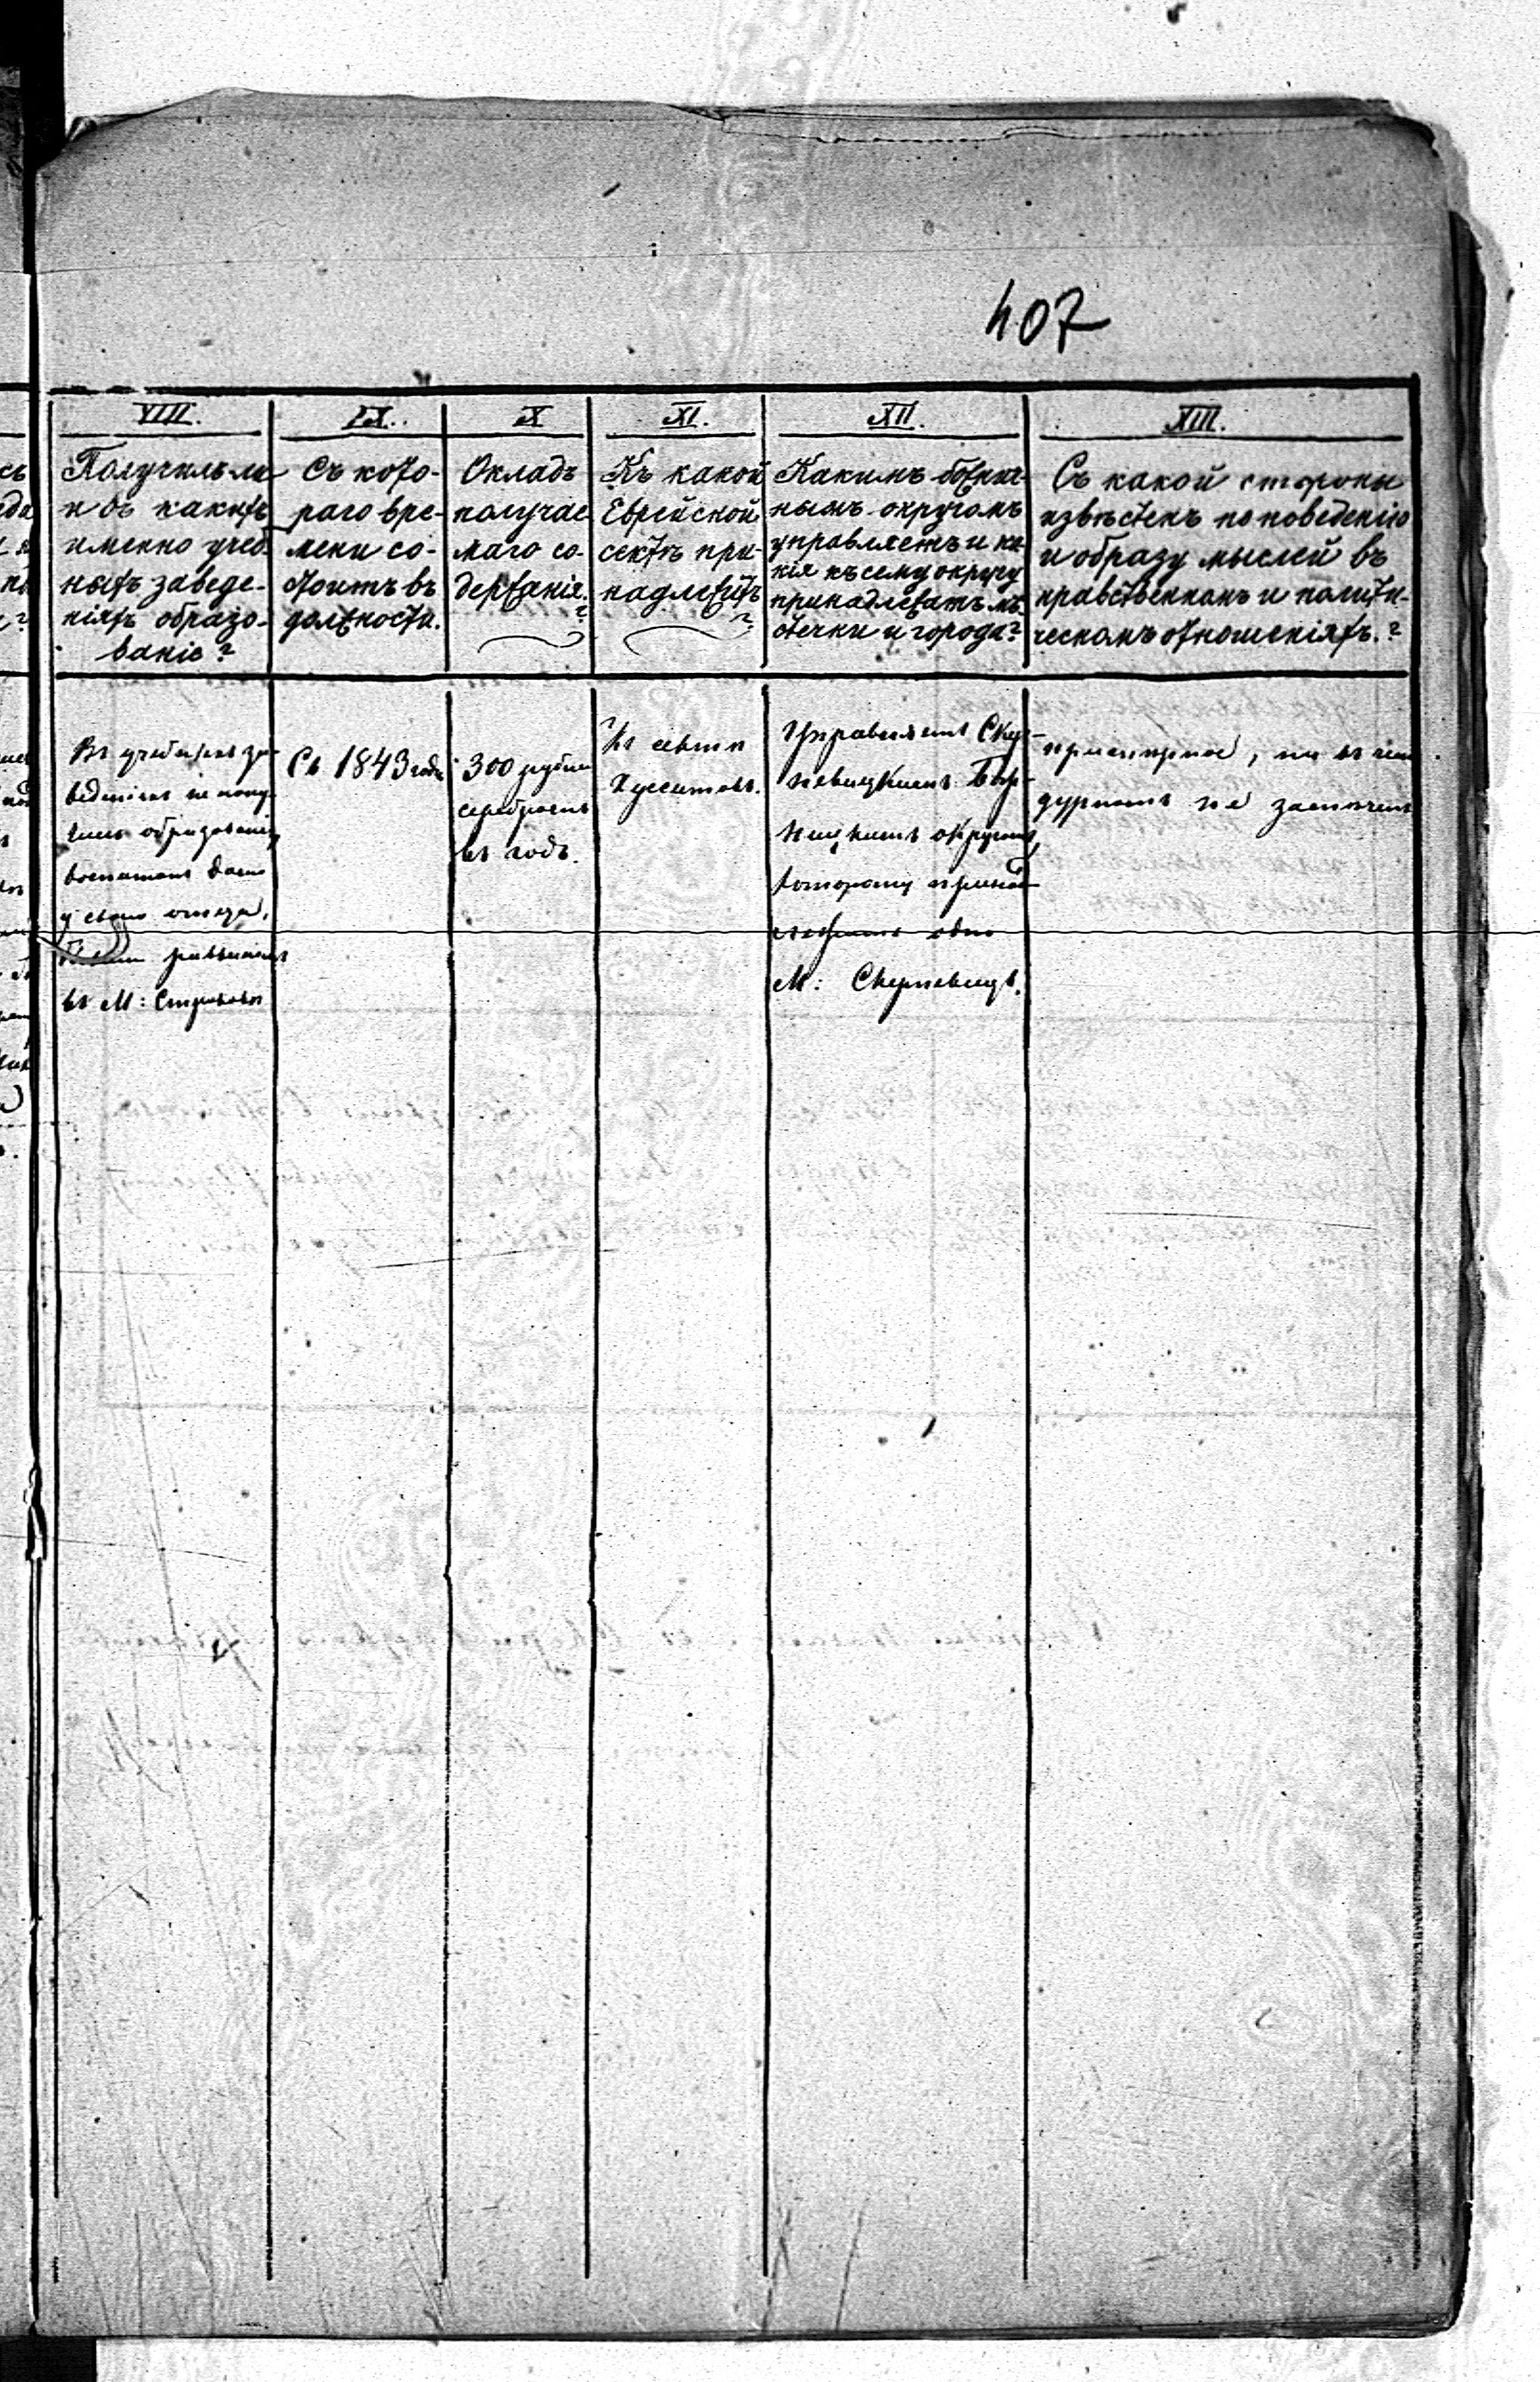 407
VIII.
Получилъ ли
и въ какихъ
именно учеб
ныхъ заведе-
нiяхъ образо-
ванiе?
IX.
Съ кото-
раго вре-
мени со-
стоитъ въ
должности.
X
Окладъ
получае
маго со-
держанiя.
?
XI.
Къ какой
Еврейской
сектѣ при-
надлежитъ
?
XII.
Какимъ божнич-
нымъ округомъ
управляетъ и ка-
кiя къ сему округу
принадлежатъ мѣ-
стечки и города?
XIII.
Съ какой стороны
извѣстенъ по поведенiю
и образу мыслей въ
нравственномъ и полити-
ческомъ отношенiяхъ.?
Въ учебныхъ за-
веденiяхъ не полу-
чилъ образованiя,
воспитанъ былъ
у своего отца,
раввина
въ М: Стрыковѣ
Съ 1843 года
300 рублей
серебромъ
въ годъ.
Къ сектѣ
Хусситовъ.
Управляетъ Скер-
невицкимъ Бож-
ницкимъ округомъ,
которому принад-
лежитъ одно
М: Скерневицы.
примѣрное, ни въ чемъ
дурномъ не замѣченъ